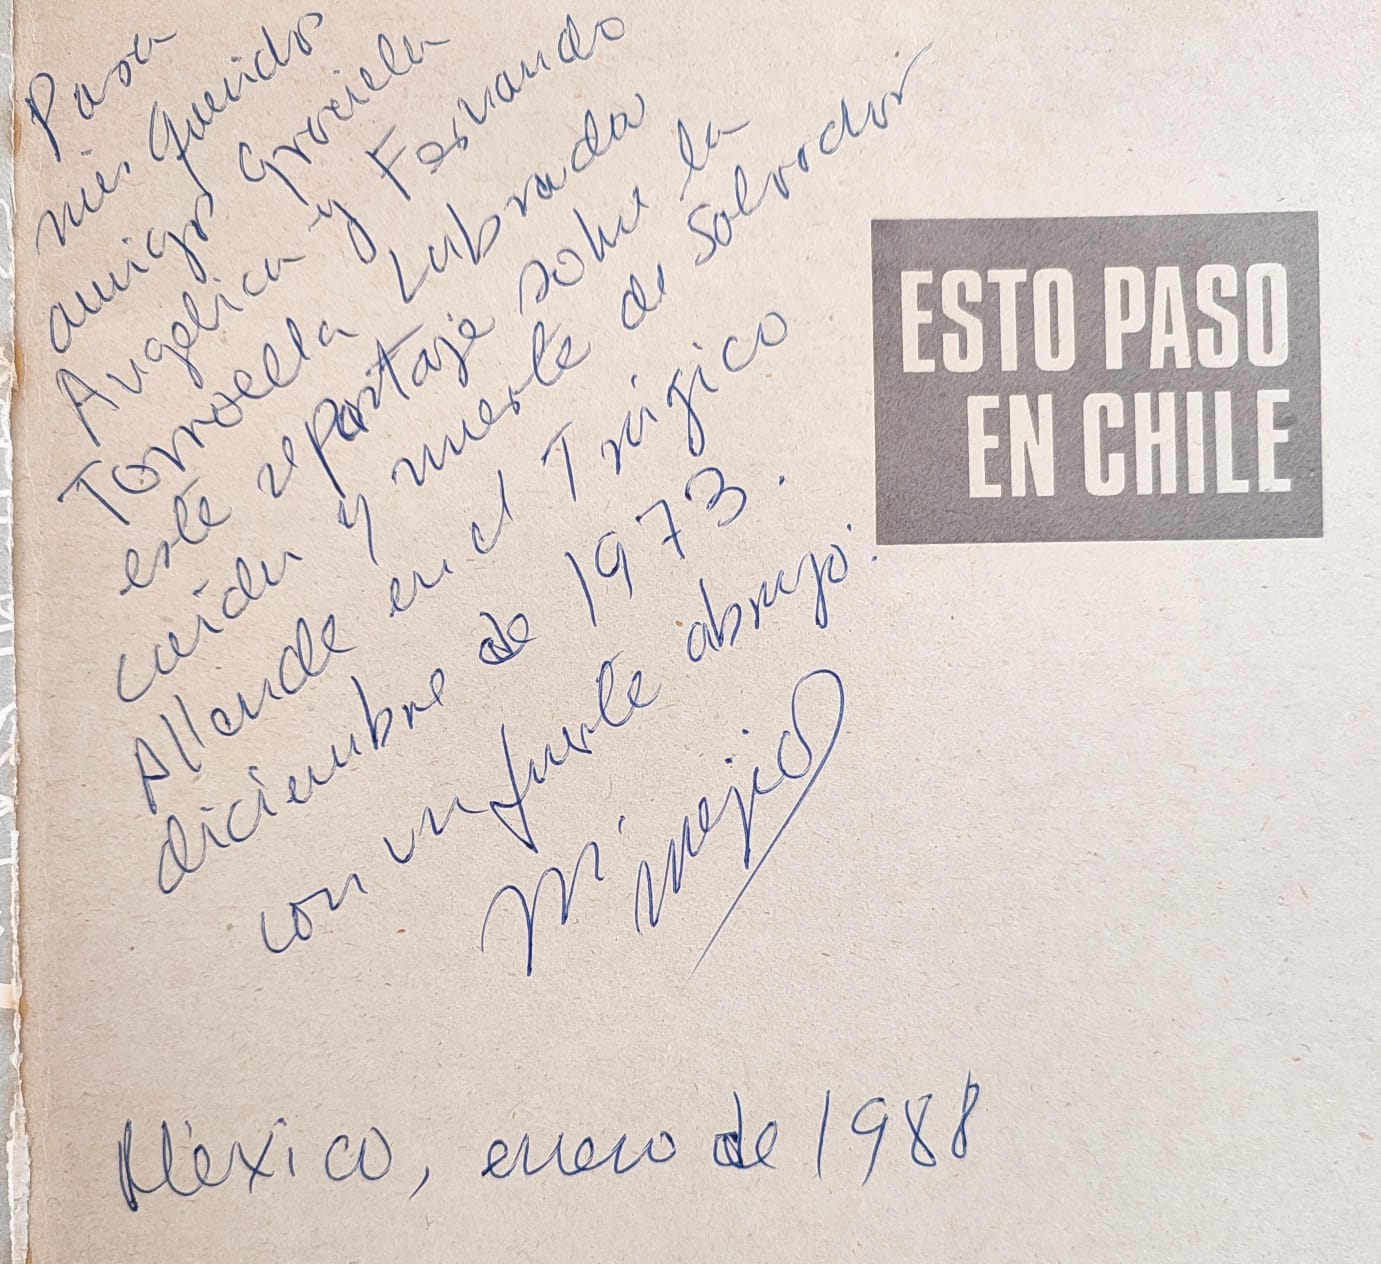 Para
mis queridos
amigos Graciela
Angélica y Fernando
Torroella Labrada
este reportaje sobre la
caída y muerte de Salvador
Allende en el Trágico
diciembre de 1973.
con un fuerte abrazo.
México, enero de 1988
ESTO PASO
EN CHILE